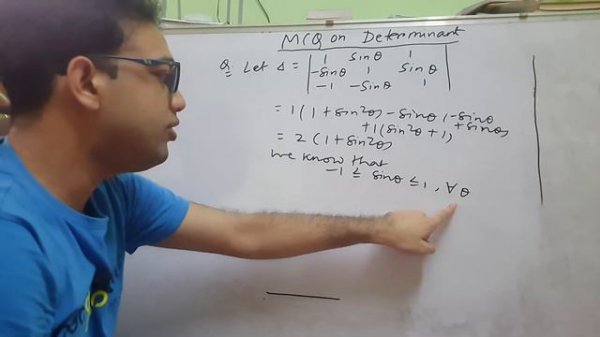 MCQ on Determinant
Q. Let Δ = | 1 sinθ 1
-sinθ 1 sinθ
-1 -sinθ 1 |
= 1(1 + sin²θ) - sinθ(-sinθ
+ sinθ)
+1(sin²θ + 1)
= 2(1 + sin²θ)
We know that
-1 ≤ sinθ ≤ 1, ∀ θ